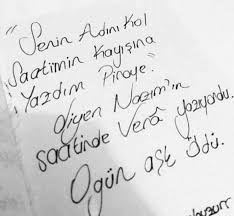 "Senin Adını Kol
Saatimin Kayışına
Yazdım Piraye."
diyen Nazım'ın
saatinde Verâ yazıyordu.
Ogün aşk öldü.